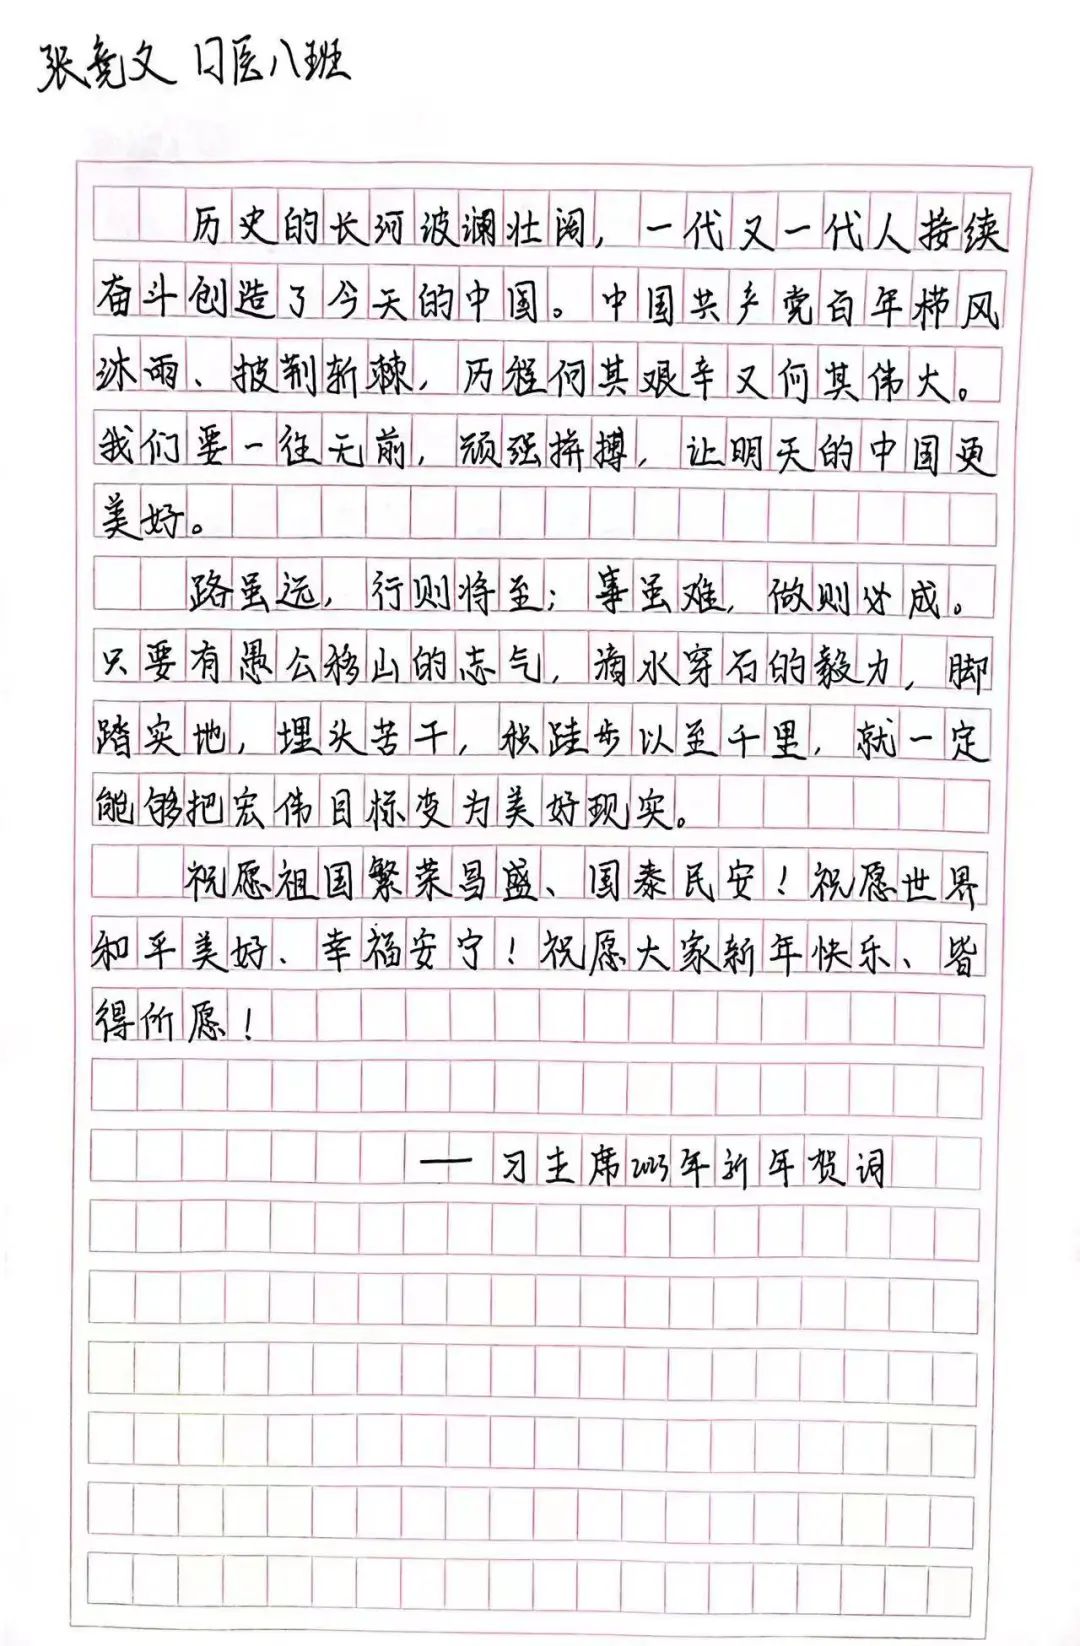 张尧文 口医八班
历史的长河波澜壮阔，一代又一代人接续
奋斗创造了今天的中国。中国共产党百年栉风
沐雨、披荆斩棘，历程何其艰辛又何其伟大。
我们要一往无前，顽强拼搏，让明天的中国更
美好。
路虽远，行则将至；事虽难，做则必成。
只要有愚公移山的志气，滴水穿石的毅力，脚
踏实地，埋头苦干，积跬步以至千里，就一定
能够把宏伟目标变为美好现实。
祝愿祖国繁荣昌盛、国泰民安！祝愿世界
和平美好、幸福安宁！祝愿大家新年快乐、皆
得所愿！
——习主席2023年新年贺词